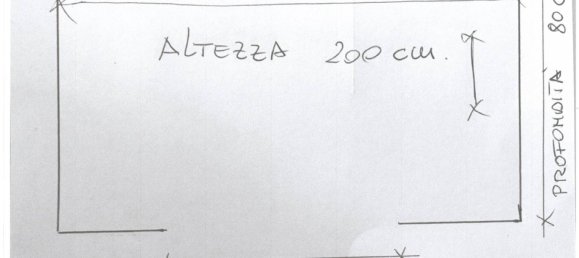 ALTEZZA 200 cm.
PROFONDITÀ 80